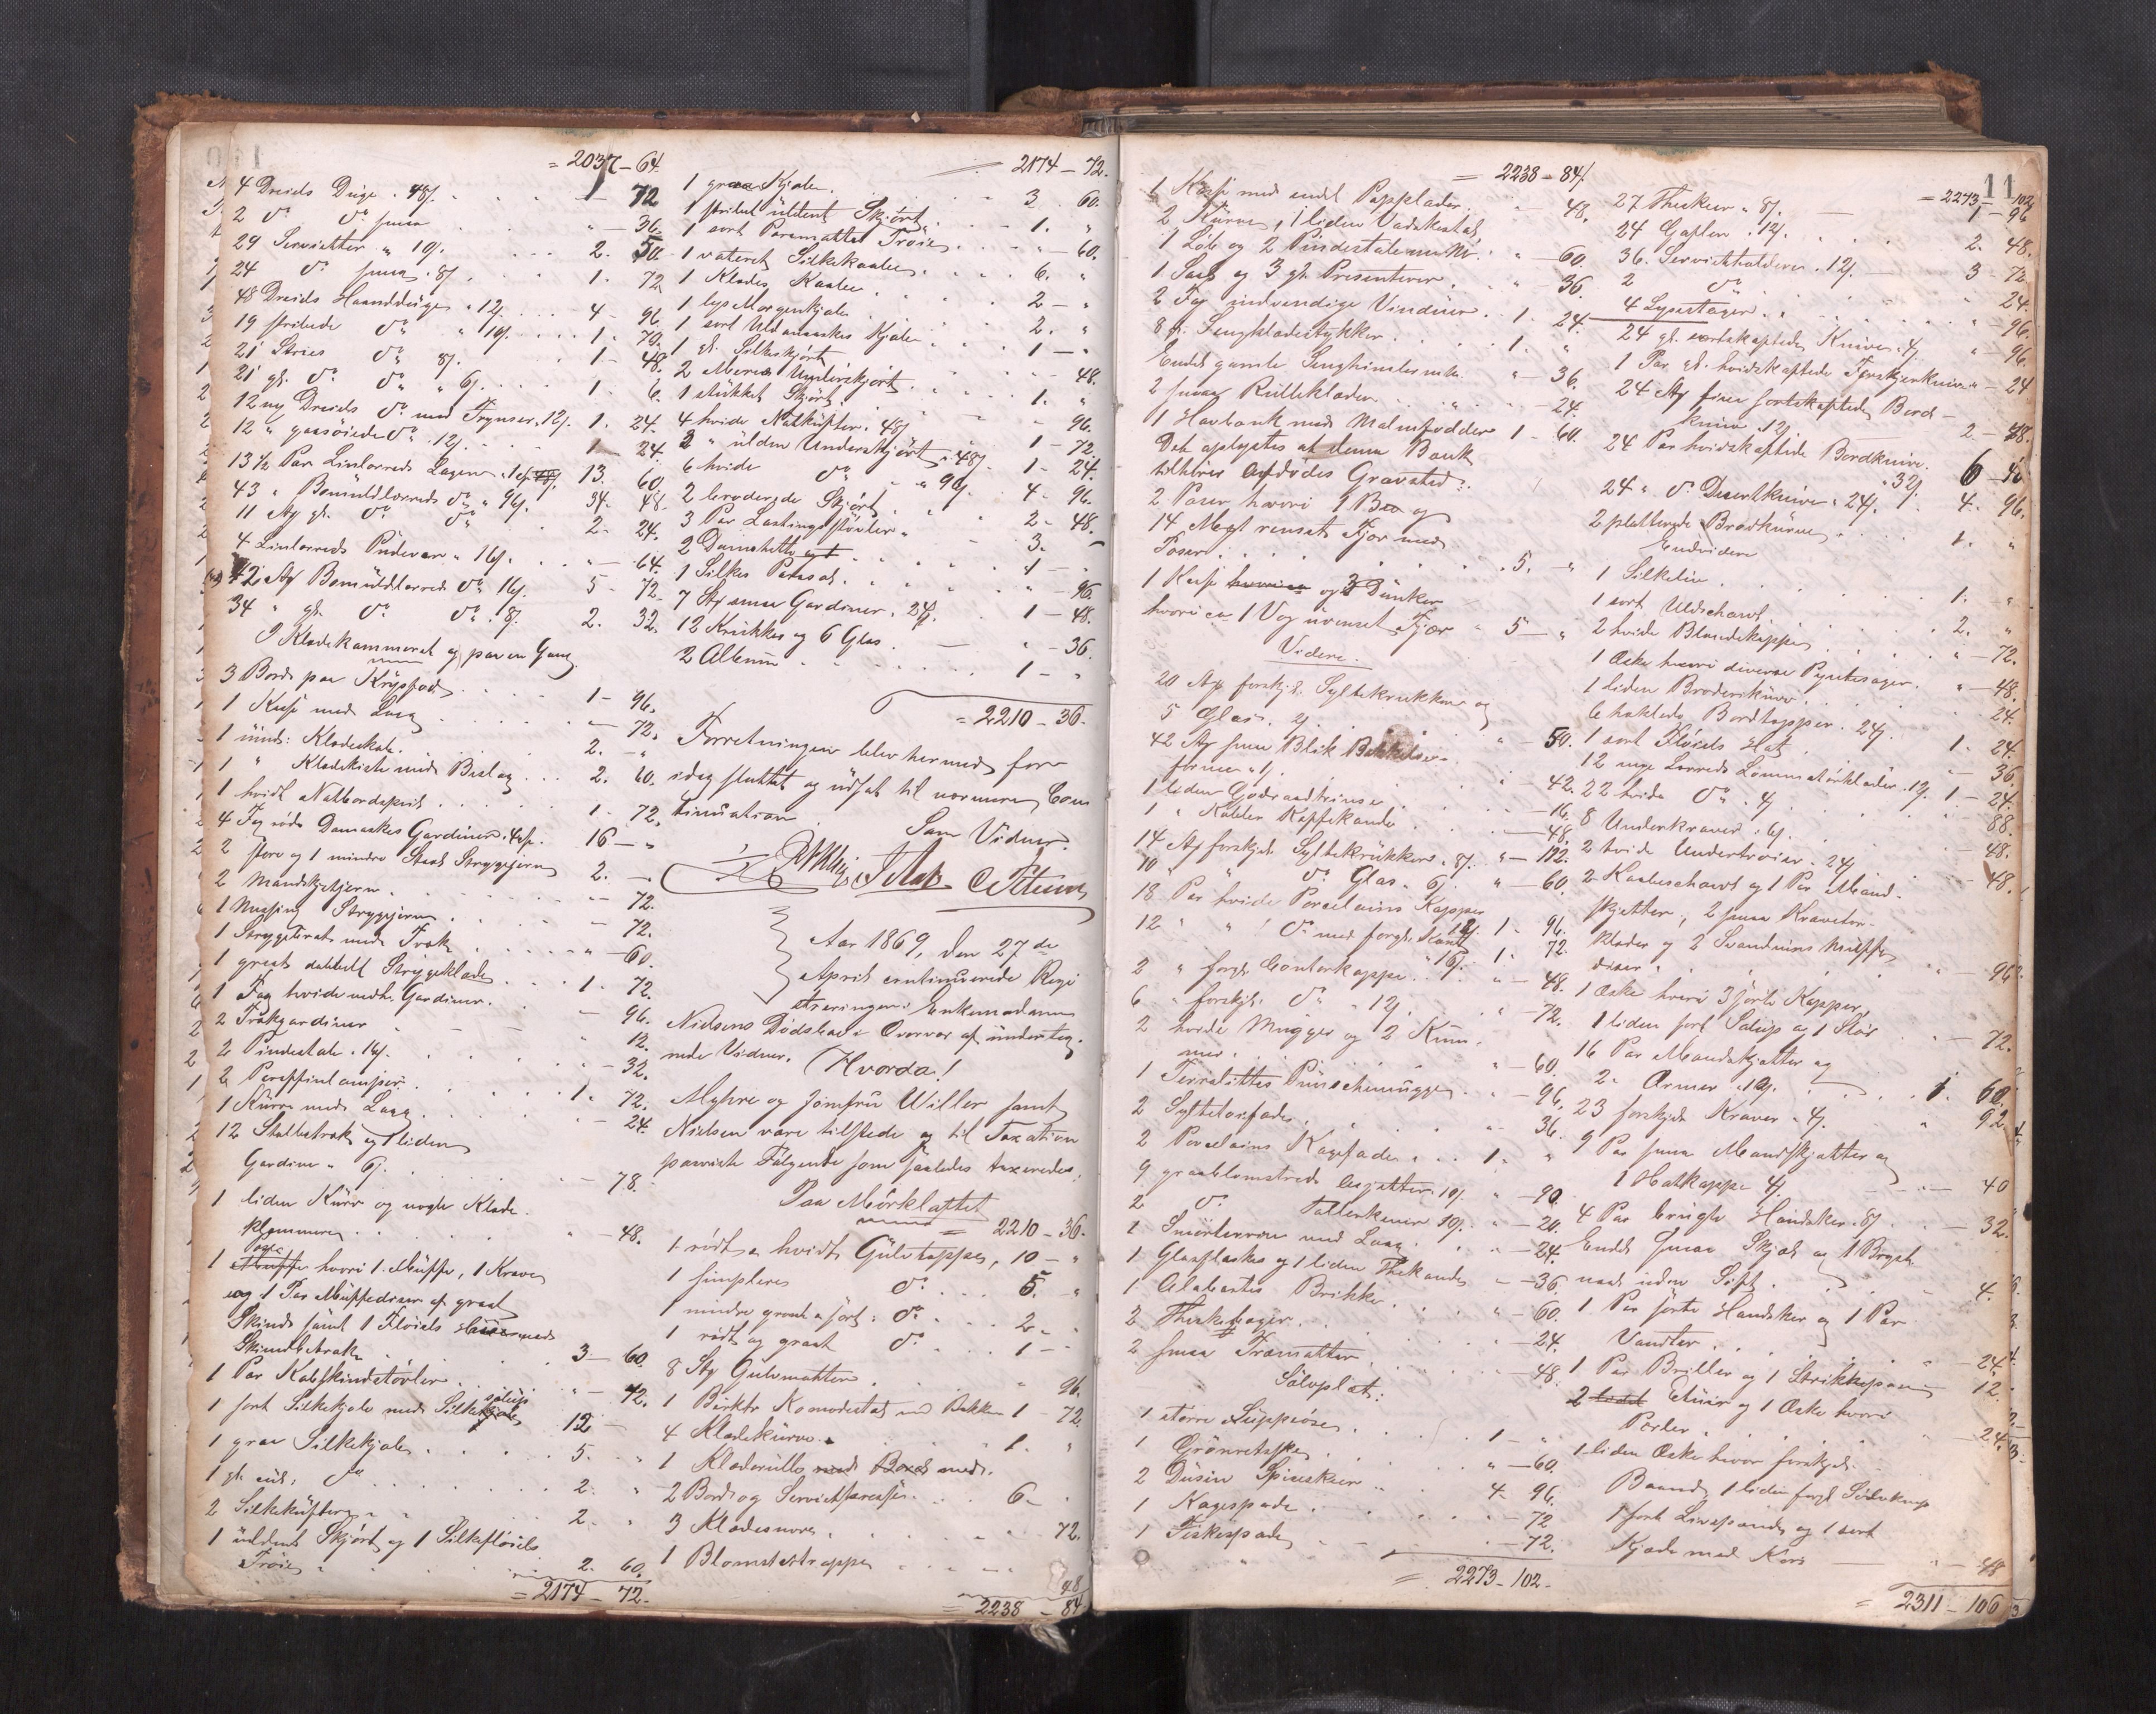 = 2037 - 64.
4 Dreiels Duge. 48/. 1 - 72
2 do do smaa " - 36.
29 Servietter " 10/. 2. 50.
24 do smaa. 8/. 1. 72
48 Dreiels Haandduge. 12/. 4 - 96
19 stribede do " 10/. 1. 70.
21 Stries do " 8/. 1 - 48.
21 gl. do do " 6/. 1. 6.
12 nye Dreiels do med Frynser. 12/. 1. 24.
12 " gaasöiede do . 12/. 1 - 24.
13 1/2 Par Linlærreds Lagener. 13. 60.
43 " Bomuldlærreds do " 96/. 34. 48.
11 Stk gl. do do 2. 24.
4 Linlærreds Pudevaar. 16/. " - 64.
42 Stk Bomuldlærreds do. 16/. 5 - 72.
34 " gl. do do . 8/. 2. 32.
I Klædekammeret og paa en Gang.
3 Borde paa Krydsfod 1 - 96.
1 Kasse med Laag " - 72.
1 Klædeskab. 2. "
1 " Klædekiste med Beslag 2. 60.
1 hvidt Natbordsskab 1. 72.
4 Fag röde Damaskes Gardiner. 16 - "
2 store og 1 mindre Staal Strygejern 2. -
2 Mandskjetjern. " - 72.
1 Messing Strygejern " - 72.
1 Strygebræt med Træk " - 60.
1 graat dobbelt Strygeklæde 1. 72.
1 Fag hvide Gardiner. " - 96.
2 Trækgardiner " 12.
2 Pindestole. 16/. " - 32.
2 Paraffinlamper 1. 72.
1 Kurv med Laag " - 24.
12 Stolbetræk og 1 liden
Gardin " 6/. " - 78.
1 liden Kurv og nogle Klæde-
klemmer " - 48.
1 Æske hvori 1 Muffe, 1 Krave
og 1 Par Muffediser af graat
Skind samt 1 Flöiels med
Skindbetræk 3 - 60.
1 Par Kalvskindstövler " - 72.
1 sort Silkekjole med Silke 12 -
1 graa Silkekjole 5. "
1 gl. do 2. "
2 Silkekufter 2. "
1 uldent Skjört og 1 Silkeflöiels
Tröie 2. 60.
= 2174 - 72.
= 2174 - 72.
1 graa Kjole. 3. 60.
1 stribet uldent Skjört 1. "
1 sort Paramattes Tröie " - 60.
1 vateret Silkekaabe 6. "
1 Klædes Kaabe 2 - "
1 lys Morgenkjole 2. "
1 sort Uldamaskes Kjole 1 - "
1 gl. Silkeskjört " - 48.
2 Merino Underskjört 1. "
1 stukket Skjört " - 96.
4 hvide Natkufter. 48/ 1 - 72.
3 " uldne Underskjört. 48/. 1 - 24.
6 hvide do " 96/. 4 - 96.
2 broderede Skjört 2 - 48.
3 Par Lastingsstövler " 3. -
2 Damehatte 1 -
1 Silkes Parasol " - 96.
7 Stk smaa Gardiner. 24/. 1 - 48.
12 Krukker og 6 Glas " - 36.
2 Album 1 - "
= 2210 - 36.
Forretningen blev hermed for
idag sluttet og udsat til nærmere Con
tinuation.
Som Vidner.
Aar 1869, den 27de
April continuerede Regi
streringen i Enkemadam
Nielsens Dödsbo i Overvær af underteg-
nede Vidner. (Hvorda!
Myhre og Jomfru Willer samt
Nielsen vare tilstede og til Taxation
paaviste Fölgende som saaledes taxeredes:
Paa Mörkloftet
= 2210 - 36.
1 rödt & hvidt Gulvteppe, 10 - "
1 simplere do 5. "
1 mindre graat & sort do 2 - "
1 rödt og graat do 1 -
8 Stk Gulvmatter " 96.
1 Birketr Komodestol med Bækken 1 - 72
4 Klædekurve 1. "
1 Klæderulle med
2 Borde og Servietpresse 6 -
3 Klædesnore " 72.
1 Blomstertrappe " 48
= 2238 - 84.
11
= 2238 - 84/.
1 Kasse med endel Papplader. " - 48.
2 Kurve, 1 liden Vadskestol
1 Löb og 2 Pindestole " - 60
1 Sax og 3 gl. Presenteer " - 36.
2 Fag indvendige Vinduer 1. 24.
8 St. Sengklædestykker 1. "
Endel gamle Senghimler " - 36.
2 smaa Rulleklæder " - 24.
1 Havebænk med Malmfödder 1 - 60.
Det oplystes at denne Bænk
tilhörer Afdödes Gravsted.
2 Poser hvori 1 Bog
14 Mrk renset Fjær med
Poser 5. "
1 Kasse og 3 Dunker
hvori ca 1 Vog urenset Fjær 5 - "
Videre.
20 Stk forskjel. Syltekrukker og
5 Glas. 2/. " - 50.
42 Stk smaa Blik Bakkels-
former. 1/. " - 42.
1 liden Godraadtrinse " - 16.
1 " Kobber Kaffekande " - 48.
14 Stk forskjel Syltekrukker. 8/. " - 112.
10 " do Glas. 6/. " - 60.
18 Par hvide Porcelains Kopper 1 - 96.
12 " " do med forgl. Kant 16/. 1. 72.
2 " forgl. Contorkopper " - 48.
6 " forskjel. do . 12/. " - 72.
2 hvide Mugger og 2 Kum-
mer " - 60.
1 Terralittes Punschemugge " - 96.
2 Syltetöifade " 36.
2 Porcelains Kagefade 1. "
9 graablomstrede Asjetter. 10/. " - 90.
2 do Tallerkener 10/. " - 20.
1 Smörterrin med Laag " - 24.
1 Glasflaske og 1 liden Thekande " - 36.
1 Alabastes Brikke " - 60.
2 Theskebager " - 24.
2 smaa Træmatter " - 48.
Sölvplet:
1 större Suppeöse 1 - "
1 Grönretske " - 60.
2 Dusin Spiseskeer 4 - 96.
1 Kagespade " - 72
1 Fiskespade " - 72.
= 2273 - 102.
= 2273 - 102
27 Theskeer. 8/. 1 - 96
24 Gafler. 12/. 2. 48.
36. Servietholdere. 12/. 3 - 72
2 do " 24.
4 Lysestager " - 96.
24 gl. sortskaftede Knive. 4/. " - 96.
1 Par gl. hvidskaftede Forskjærkniv " - 24
24 Stk fine sortskaftede Bord-
knive. 12/. 2 - 48.
24 Par hvidskaftede Bordknive. 32/. 6 - 48.
24 " do Desertknive. 24/. 4. 96.
2 pletterede Brödkurve 1. "
Endvidere
1 Silkelin 1. "
1 sort Uldschavl 2. "
2 hvide Blondekapper " - 72.
1 Æske hvori diverse Pyntesager. " - 48.
1 liden Broderskurv " 24.
6 heklede Bordtopper. 24/. 1. 24.
1 sort Flöiels Hat " 36.
12 nye Lærreds Lommetörklæder. 12/. 1 - 24.
22 hvide do . 4/ " 88.
8 Underkraver. 6/. " - 48.
2 hvide Undertröier. 24/ " - 48.
2 Kaabeschavl og 1 Par Mand-
skjetter, 2 smaa Kravetör-
klæder og 2 Svanduns Muffe
diser. " - 96.
1 Æske hvori 3 sorte Kapper,
1 liden sort Salup og 1 Slör " - 72.
16 Par Mandskjetter og
2 " Ærmer. 10/. 1. 60.
23 forskjel Kraver. 4/. " 92.
9 Par smaa Mandskjetter og
1 Hatkappe 4/. " - 40
4 Par brugte Handsker. 8/. " - 32.
Endel smaa Skjæl og 1 Bryst-
naal uden Sift. " 4.
1 Par sorte Handsker og 1 Par
Vandter " 24.
1 Par Briller og 1 Strikkepose " 12.
2 Etuier og 1 Æske hvori
Perler " - 24.
1 liden Æske hvori forskjel.
Baand, 1 liden forgl Södekop
1 sort Livspænde og 1 sort
Kjæde med Kors " - 48
= 2311 - 106